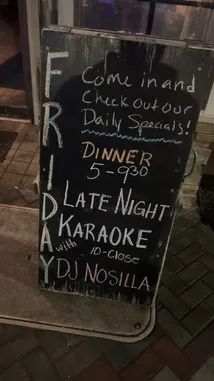 FRIDAY
Come in and
Check out our
Daily Specials!
DINNER
5-930
LATE NIGHT
KARAOKE
with 10-Close
DJ NOSILLA